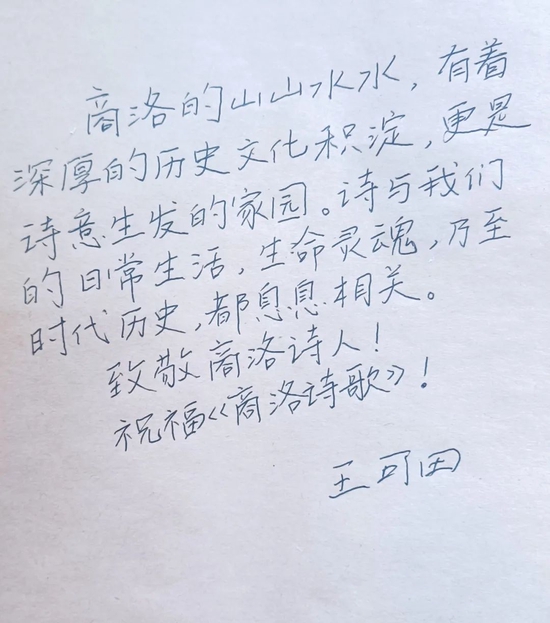 商洛的山山水水，有着
深厚的历史文化积淀，更是
诗意生发的家园。诗与我们
的日常生活，生命灵魂，乃至
时代历史，都息息相关。
致敬商洛诗人！
祝福《商洛诗歌》！
王可田